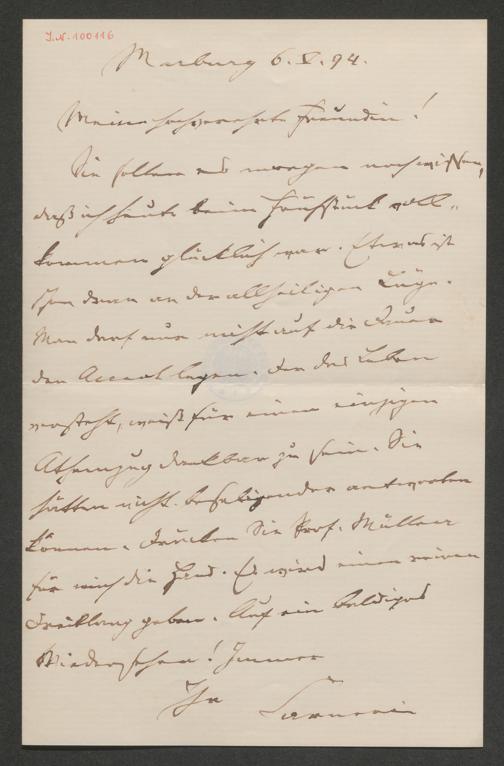 I.N. 100116
Marburg 6. V. 94.
Meine hochverehrte Freundin!
Sie sollen es morgen noch wissen,
daß ich heute beim Frühstück voll-
kommen glücklich war. Etwas ist
schon daran an der allheiligen Lüge.
Man darf nur nicht auf die Dauer
den Accent legen. Der das Leben
versteht, weiß für einen einzigen
Athemzug dankbar zu sein. Sie
hätten nicht beseligender antworten
können. Drücken Sie Prof. Müller
für mich die Hand. Es wird einen reinen
Dreiklang geben. Auf ein baldiges
Wiedersehen! Immer
Ihr